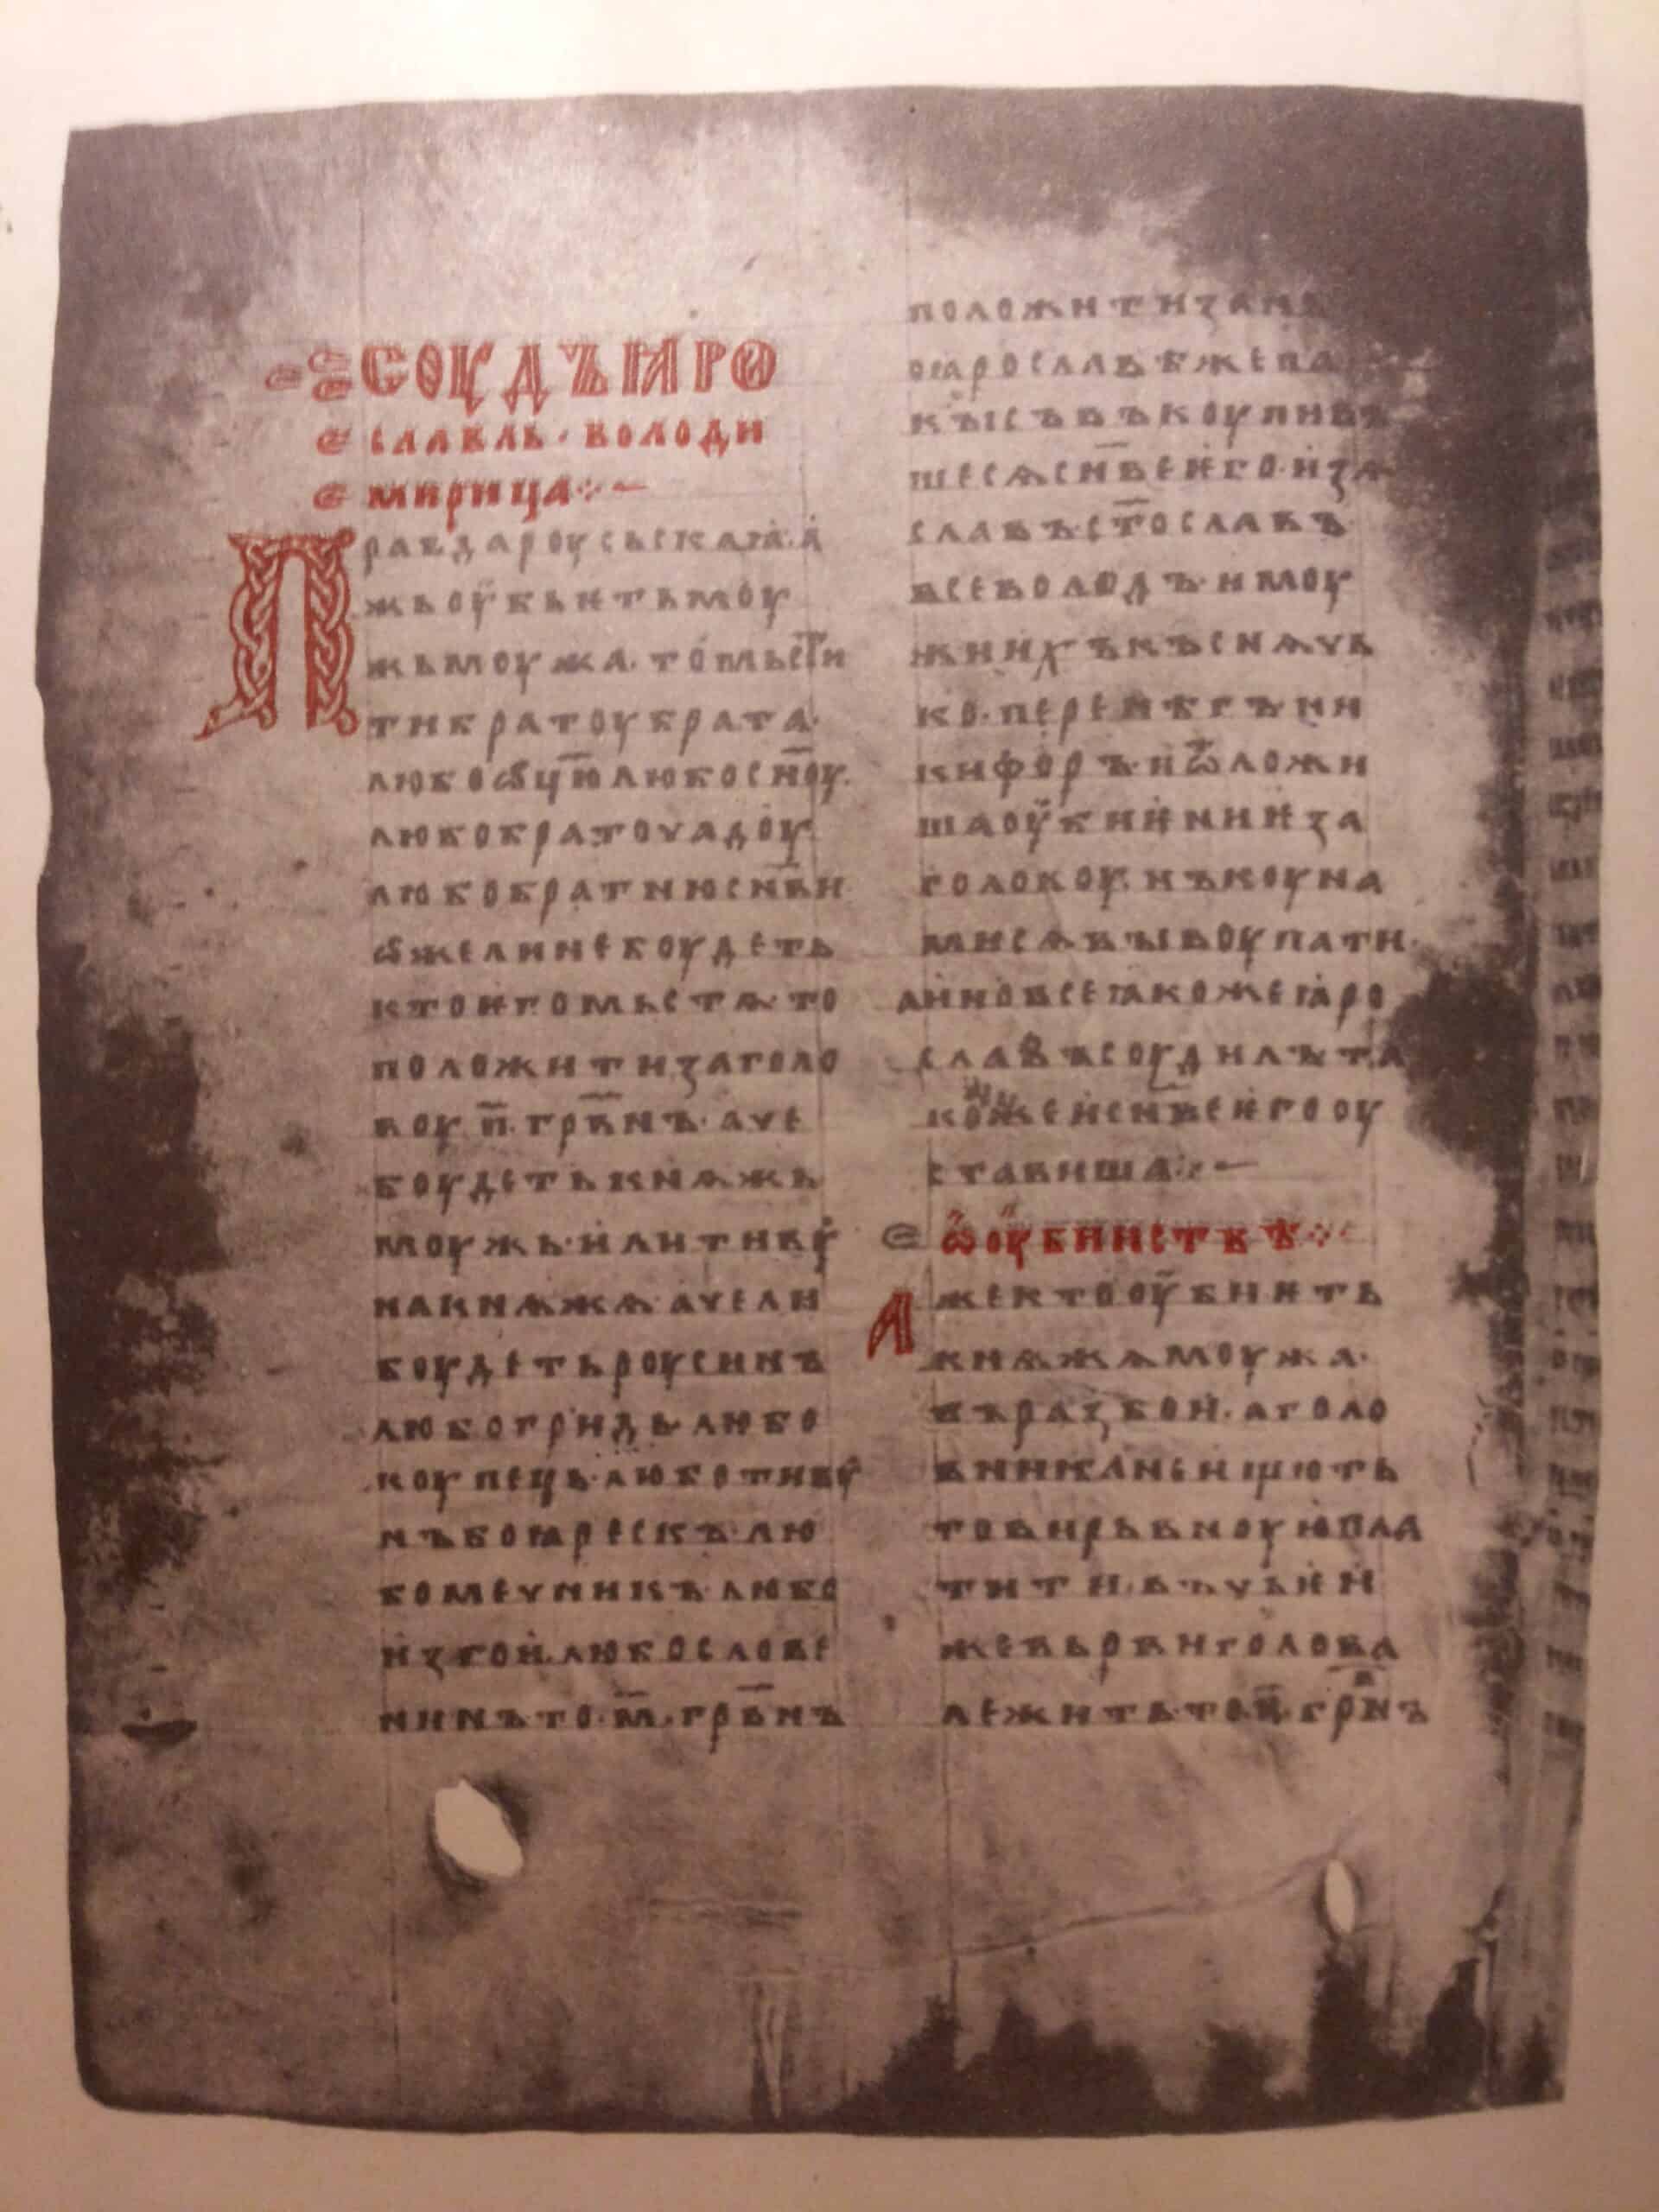 СОУДЪ ꙖРО
СЛАВЛЬ · ВОЛОДИ
МИРИЦА ⁘ —
ПРАВДА РОУСЬСКАꙖ · А
ЖЬ ОУБЬѤТЬ МОУ
ЖЬ МОУЖА · ТО МЬСТИ
ТИ БРАТОУ БРАТА ·
ЛЮБО ѠЦ҃Ю ЛЮБО СН҃ОУ ·
ЛЮБО БРАТОЧАДОУ ·
ЛЮБО БРАТНЮ СН҃ВИ
ѠЖЕ ЛИ НЕ БОУДЕТЬ
КТО ѤГО МЬСТѦ · ТО
ПОЛОЖИТИ ЗА ГОЛО
ВОУ · П҃ · ГРВ҃НЪ · АЧЕ
БОУДЕТЬ КНѦЖЬ
МОУЖЬ · ИЛИ ТИВУ
НА КНѦЖѦ · АЧЕ ЛИ
БОУДЕТЬ РОУСИНЪ
ЛЮБО ГРИДЬ · ЛЮБО
КОУПЕЦЬ · ЛЮБО ТИВУ
НЪ БОꙖРЕСКЪ · ЛЮ
БО МЕЧНИКЪ · ЛЮБО
ИЗГОИ · ЛЮБО СЛОВЕ
НИНЪ ТО · М҃ · ГРВ҃НЪ
ПОЛОЖИТИ ЗА НЬ
ПО ꙖРОСЛАВѢ ЖЕ ПА
КЫ СЪВЪКОУПИВЪ
ШЕСѦ СН҃ВЕ ѤГО · ИЗѦ
СЛАВЪ · СТ҃ОСЛАВЪ
ВСЕВОЛОДЪ · И МОУ
ЖИ ИХЪ КЪСНѦЧЬ
КО · ПЕРЕНѢГЪ · НИ
КИФОРЪ · И ѾЛОЖИ
ША ОУБИѤНИѤ ЗА
ГОЛОВОУ · НЪ КОУНА
МИ СѦ ВЫКОУПАТИ ·
А ИНО ВСЕ ꙖКОЖЕ ꙖРО
СЛАВЪ СОУДИЛЪ ТА
КОЖЕ И СН҃ВЕ ѤГО ОУ
СТАВИША ⁘ —
Ѡ ОУБИИСТВѢ ⁘
АЖЕ КТО ОУБИѤТЬ
КНѦЖѦ МОУЖА ·
ВЪ РАЗБОИ · А ГОЛО
ВНИКА НЕ ИЩЮТЬ
ТО ВИРЬВНОУЮ ПЛА
ТИТИ · ВЪ ЧЬѤИ
ЖЕ ВЬРВИ ГОЛОВА
ЛЕЖИТЬ ТО П҃ · ГРВ҃НЪ